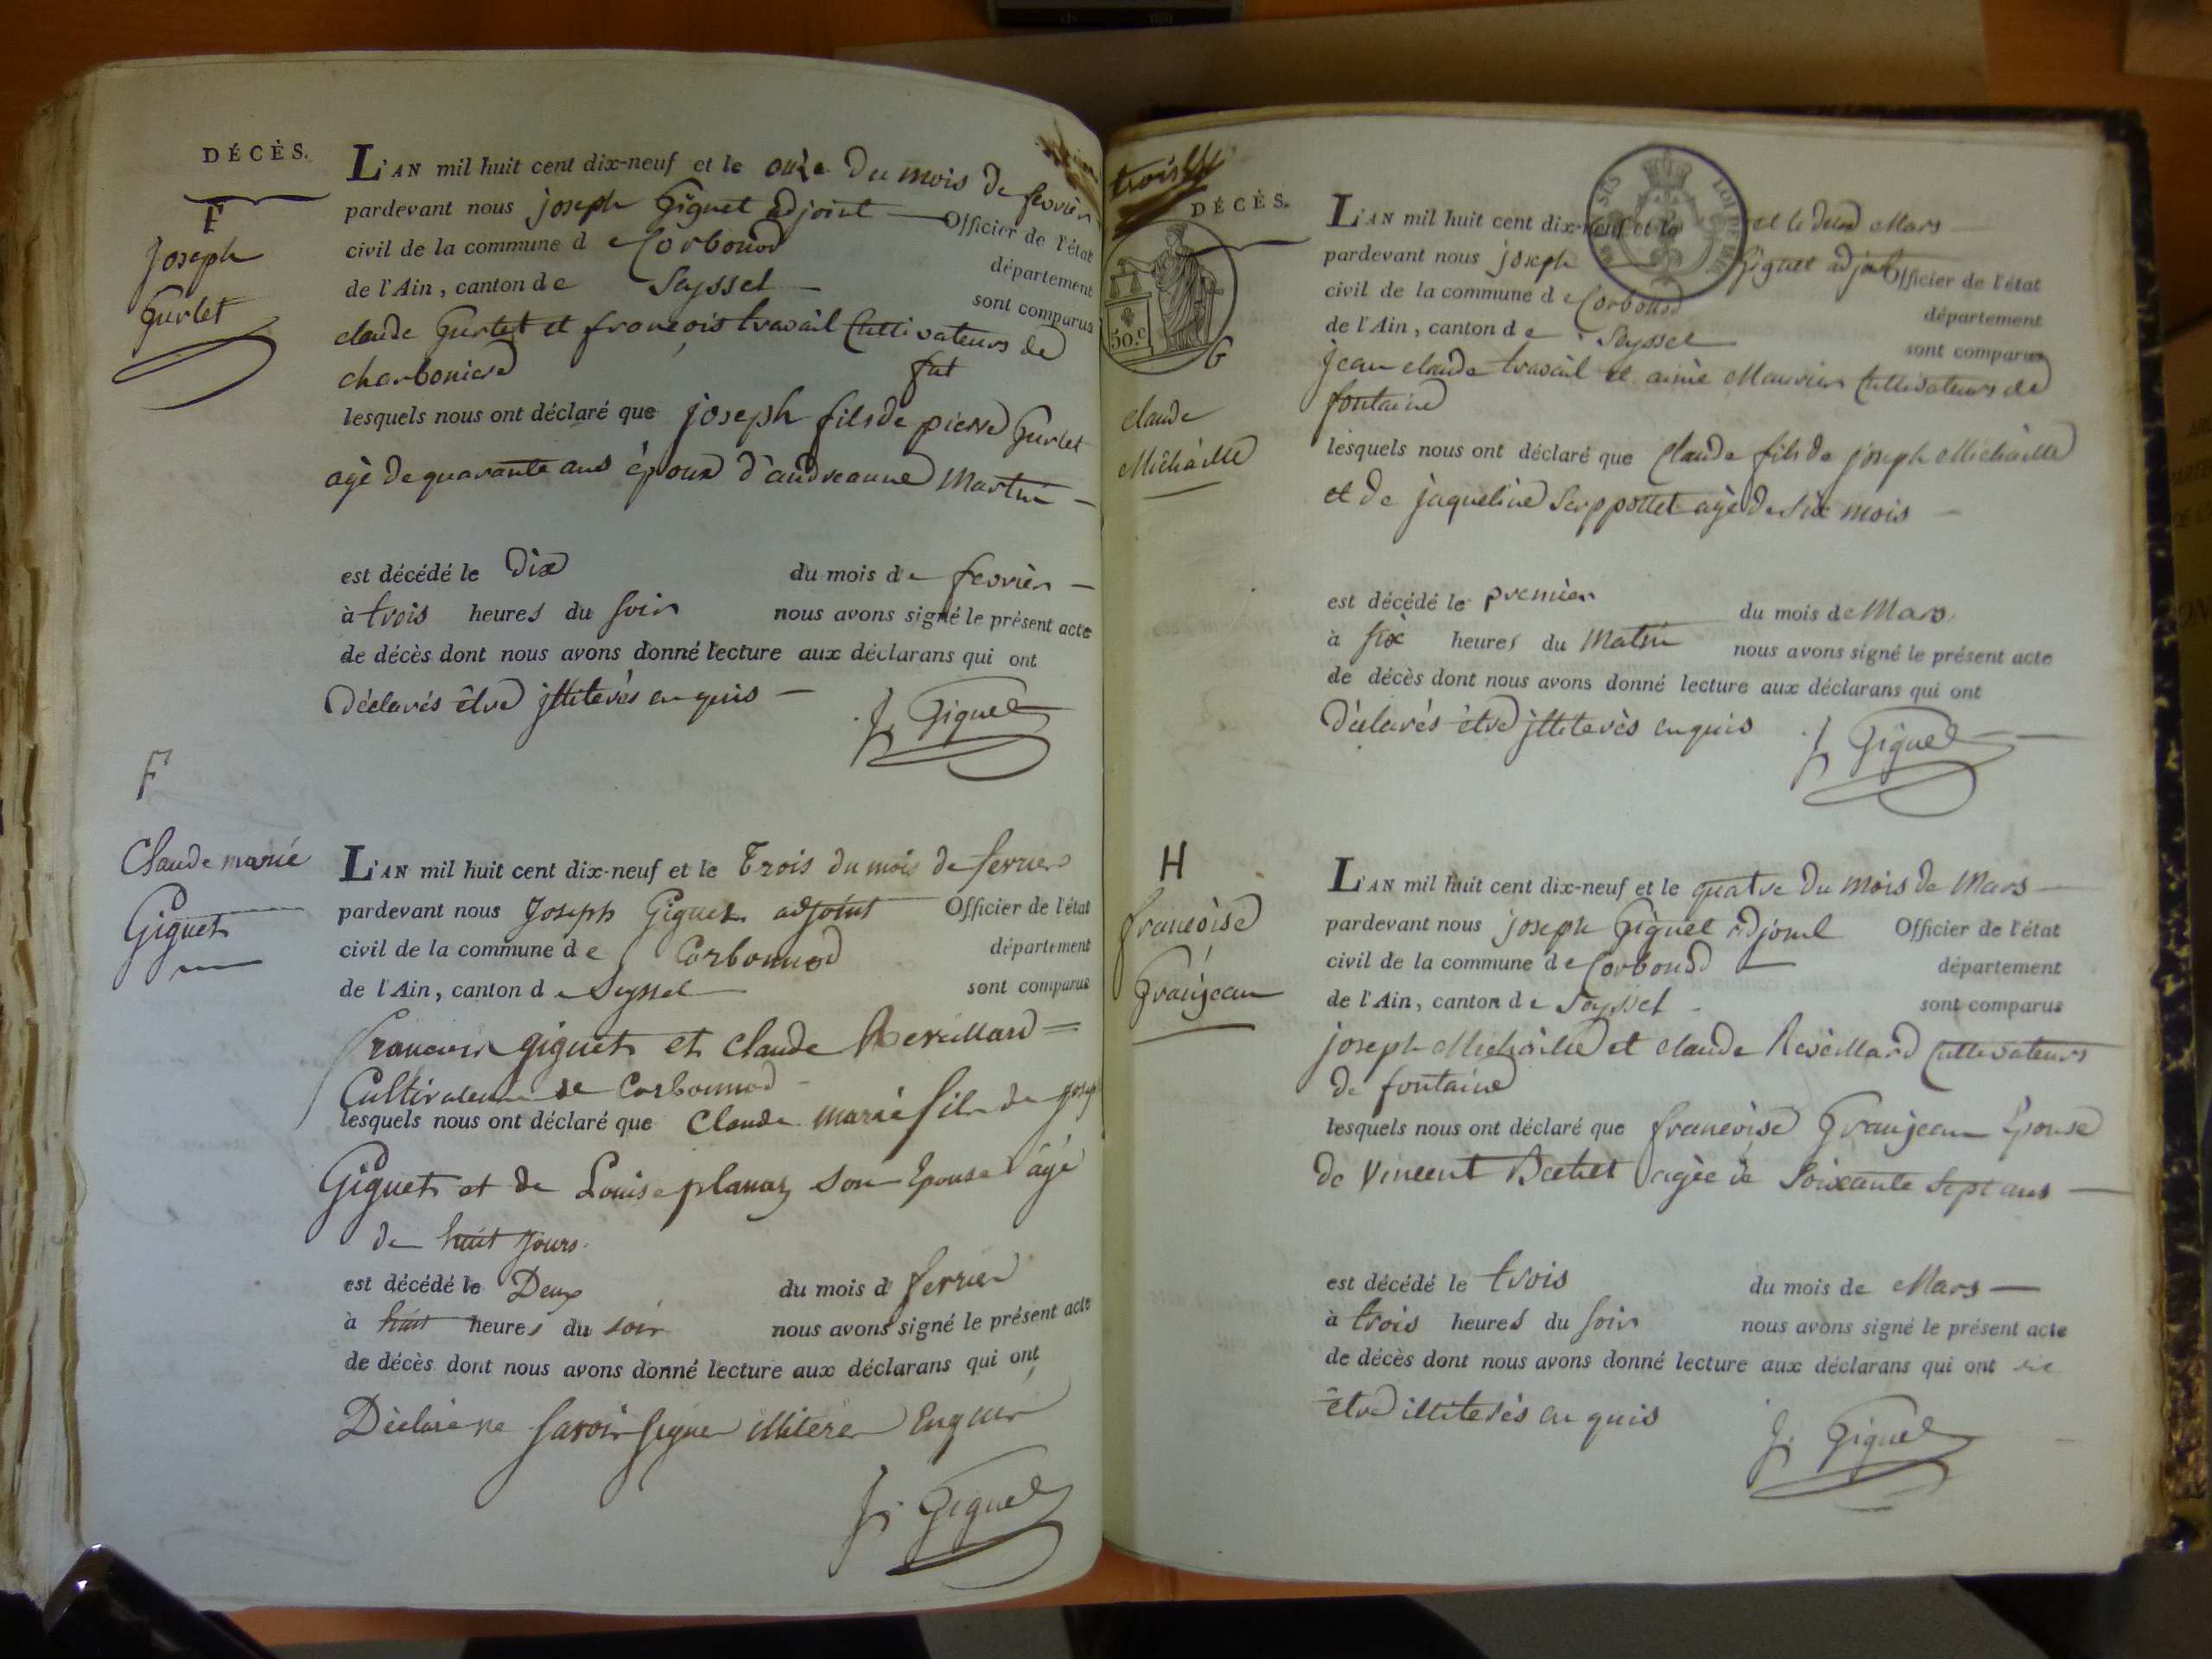 DÉCÈS.
F
joseph
Gurlet
L'AN mil huit cent dix-neuf et le onze du mois de fevrier
pardevant nous joseph Giguet adjoint Officier de l'état
civil de la commune de Corbonod département
de l'Ain, canton de Seyssel sont comparus
claude Gurlet et francois travail Cultivateurs de
charboniere fut
lesquels nous ont déclaré que joseph fils de pierre Gurlet
agé de quarante ans époux d'andreanne Martin
est décédé le dix du mois de fevrier
à trois heures du soir nous avons signé le présent acte
de décès dont nous avons donné lecture aux déclarans qui ont
déclarés être jlliterés enquis
J. Giguet
F
Claude marié
Giguet
L'AN mil huit cent dix-neuf et le Trois du mois de fevrier
pardevant nous Joseph Giguet adjoint Officier de l'état
civil de la commune de Corbonnod département
de l'Ain, canton de Seyssel sont comparus
francois giguet et claude Reveillard
Cultivateur de Corbonnod
lesquels nous ont déclaré que Claude marié fils de Josep
Giguet et de Louise planaz son Epouse âgé
de huit Jours.
est décédé le Deux du mois d fevrier
à huit heures du soir nous avons signé le présent acte
de décès dont nous avons donné lecture aux déclarans qui ont
Déclaré ne savoir signer illiterer Enquis
J. Giguet
trois
DÉCÈS.
50.c
G
claude
Michaille
L'AN mil huit cent dix-neuf et le et le deux Mars
pardevant nous joseph Giguet adjoint Officier de l'état
civil de la commune de Corbonod département
de l'Ain, canton de Seyssel sont comparus
jean claude travail et aimé Mauvier Cultivateurs de
fontaine
lesquels nous ont déclaré que Claude fils de joseph Michaille
et de jaqueline Serppottet agé de six mois
est décédé le premier du mois de Mars
à six heures du Matin nous avons signé le présent acte
de décès dont nous avons donné lecture aux déclarans qui ont
déclarés être jlliterés enquis
J. Giguet
H
francoise
Granjean
L'AN mil huit cent dix-neuf et le quatre du mois de Mars
pardevant nous joseph Giguet adjoint Officier de l'état
civil de la commune de Corbonod département
de l'Ain, canton de Seyssel sont comparus
joseph Michaille et claude Reveillard Cultivateurs
de fontaine
lesquels nous ont déclaré que francoise Granjean épouse
de Vincent Bertet agée de soixante sept ans
est décédé le trois du mois de Mars
à trois heures du soir nous avons signé le présent acte
de décès dont nous avons donné lecture aux déclarans qui ont
être illiterés enquis
J. Giguet